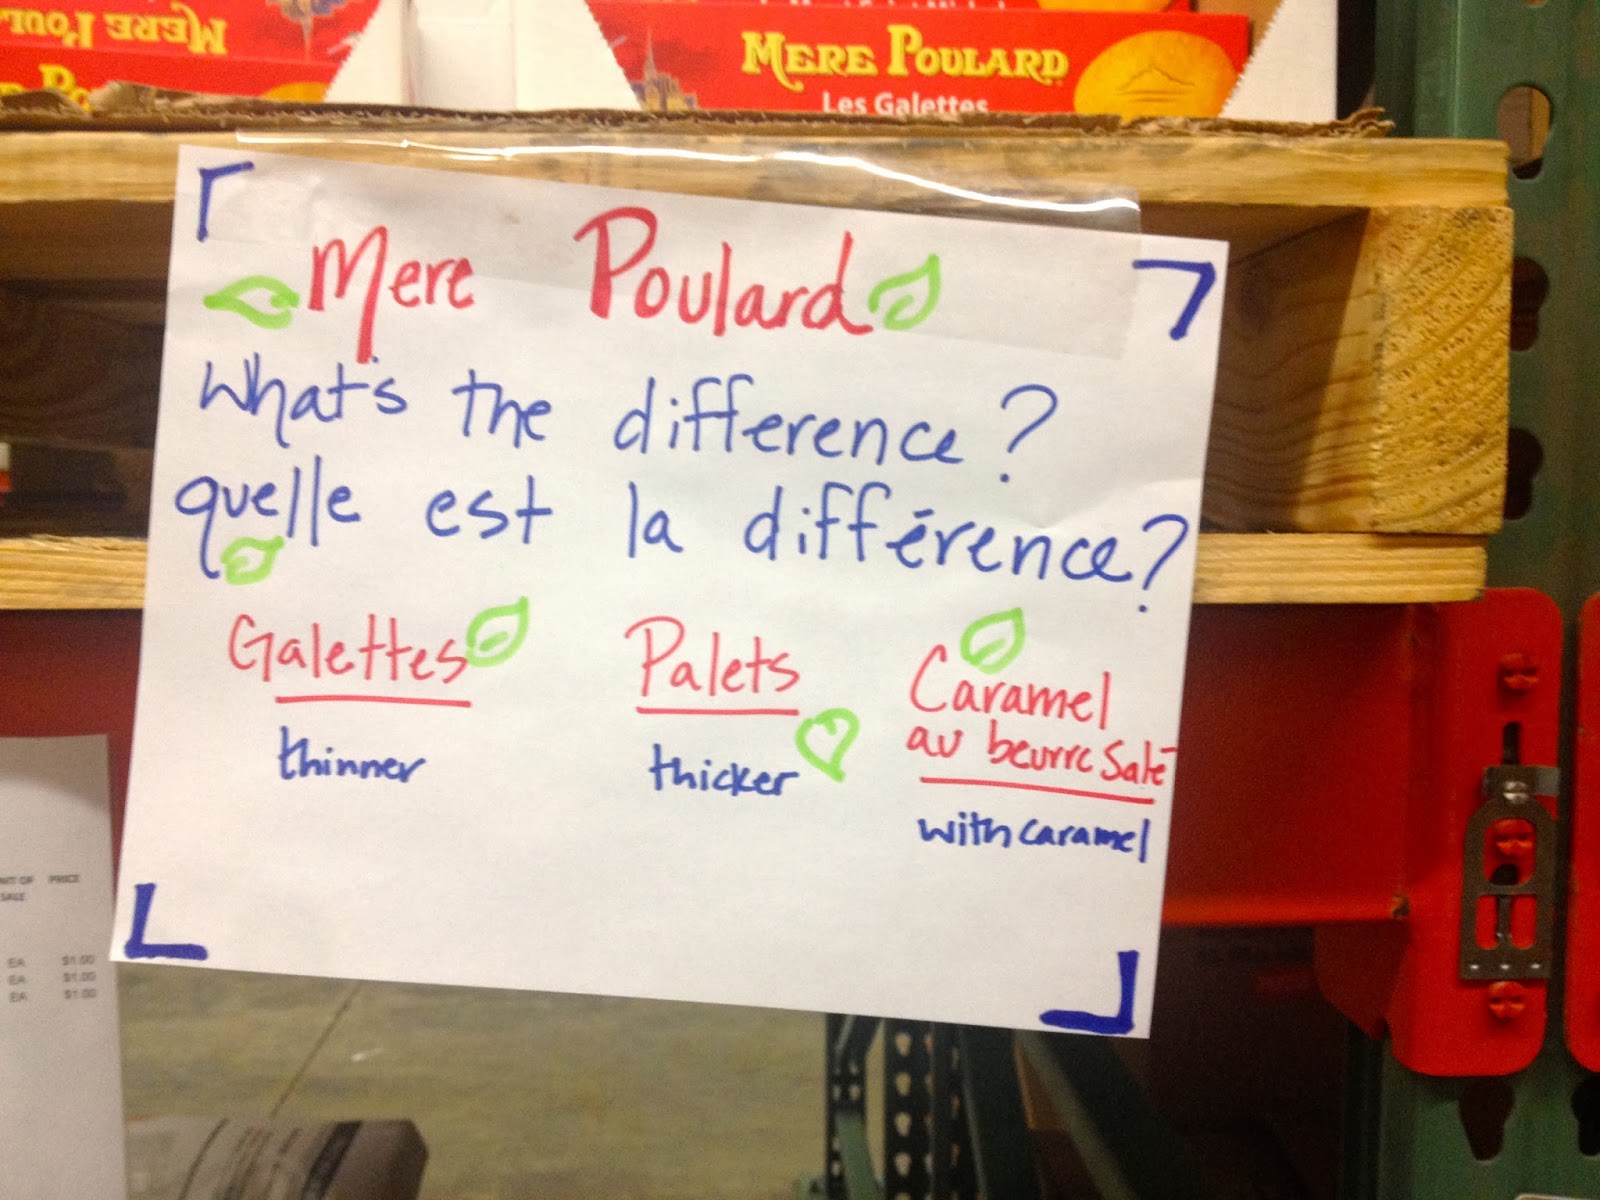 MERE POULARD
MERE POULARD
Les Galettes
Mere Poulard
What's the difference?
quelle est la différence?
Galettes Palets Caramel
au beurre Salé
thinner thicker with caramel
PRICE
SALE
EA $1.00
EA $1.00
EA $1.00